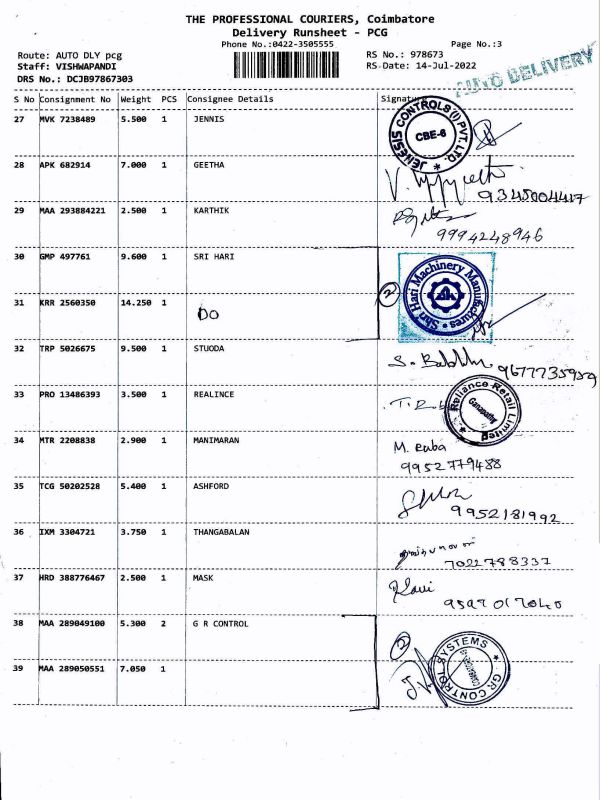 THE PROFESSIONAL COURIERS, Coimbatore
Delivery Runsheet - PCG
Phone No.:0422-3505555 Page No.:3
Route: AUTO DLY pcg RS No.: 978673
Staff: VISHWAPANDI RS Date: 14-Jul-2022
DRS No.: DCJB97867303
AUTO DELIVERY
S No Consignment No Weight PCS Consignee Details Signature
27 MVK 7238489 5.500 1 JENNIS
JENESIS CONTROLS(I) PVT.LTD. * CBE-6
28 APK 682914 7.000 1 GEETHA
9345004417
29 MAA 293884221 2.500 1 KARTHIK
9994248946
30 GMP 497761 9.600 1 SRI HARI
Shri Hari Machinery Manufactures
2
31 KRR 2560350 14.250 1 DO
32 TRP 5026675 9.500 1 STUODA
33 PRO 13486393 3.500 1 REALINCE
Reliance Retail Limited
Ganapathy
34 MTR 2208838 2.900 1 MANIMARAN
9952779488
35 TCG 50202528 5.400 1 ASHFORD
9952181992
36 IXM 3304721 3.750 1 THANGABALAN
7022788337
37 HRD 388776467 2.500 1 MASK
38 MAA 289049100 5.300 2 G R CONTROL
2
GR CONTROL SYSTEMS *
39 MAA 289050551 7.050 1